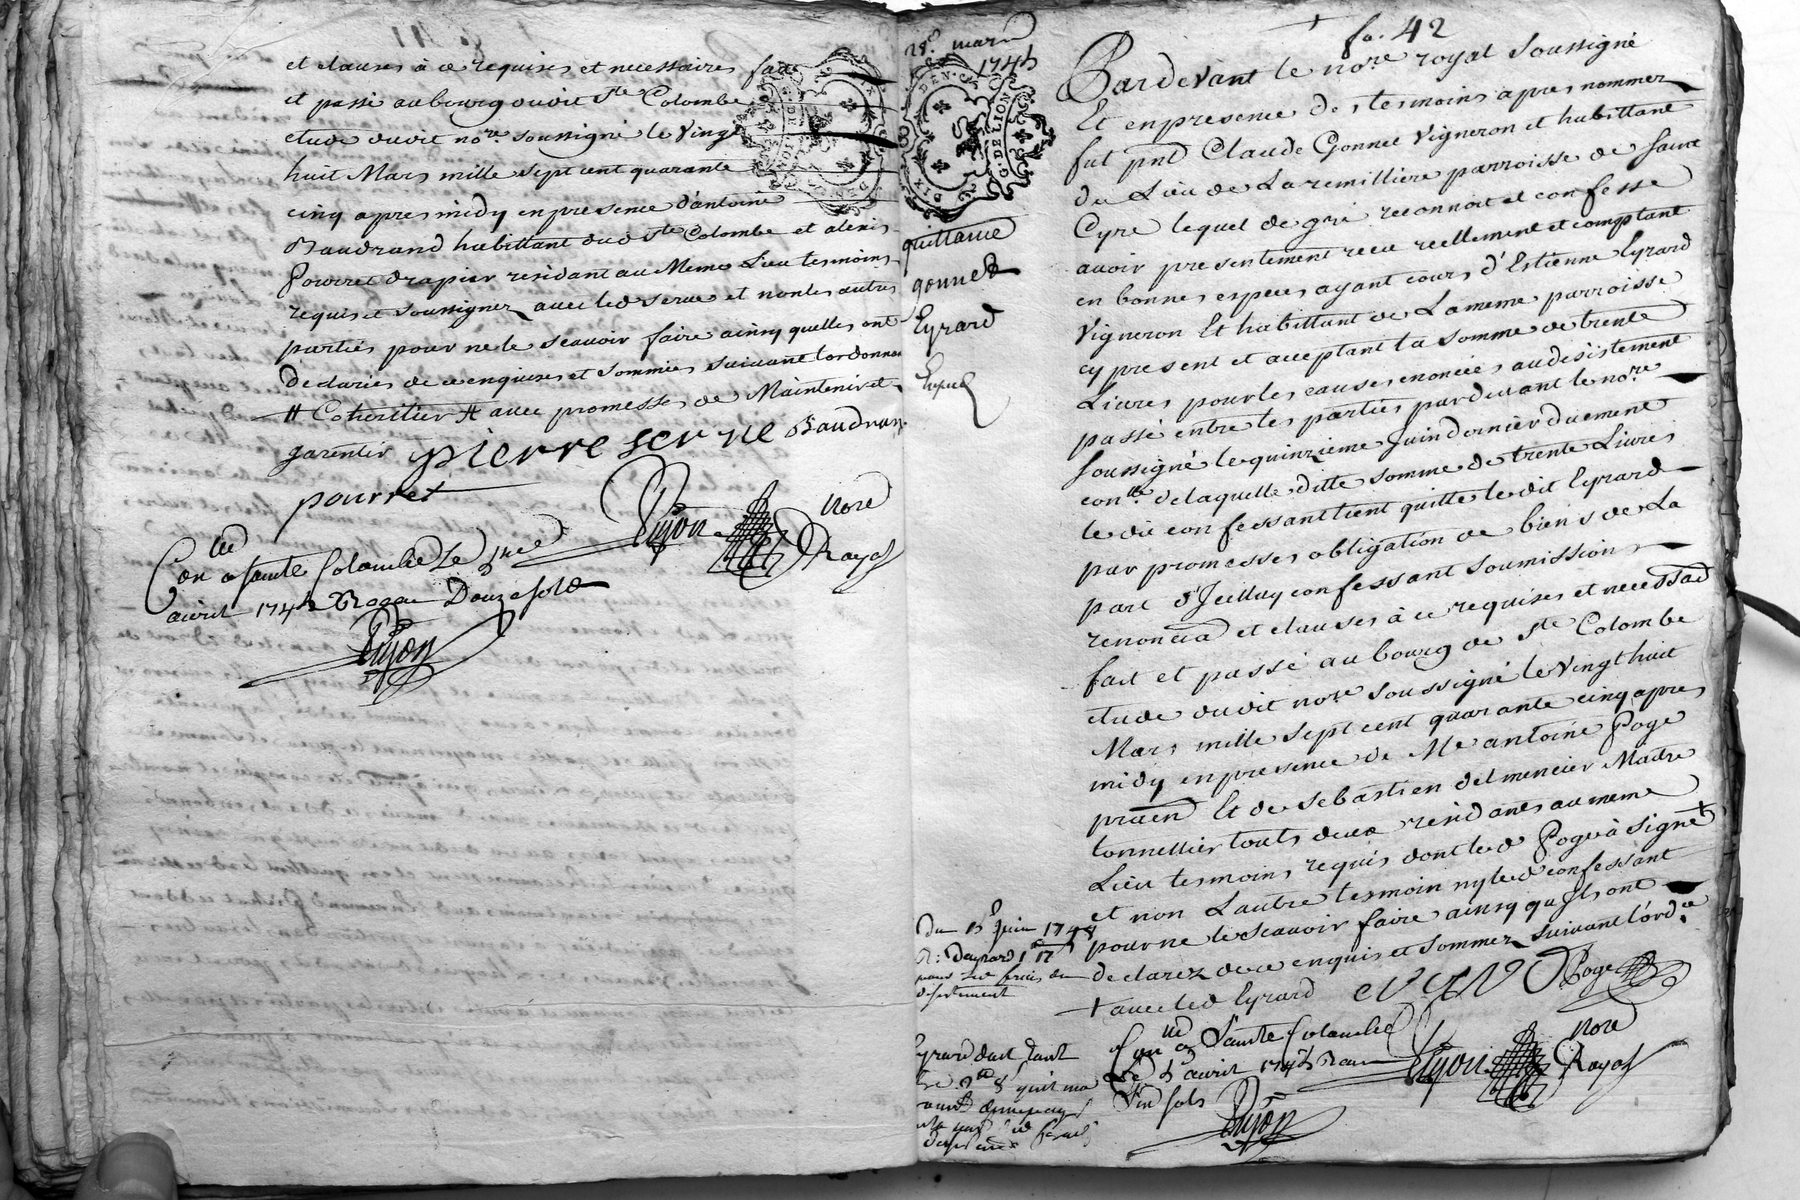 et clauses à ce requises et necessaires fait
et passé au bourg dudit Ste Colombe
etude dudit nore. soussigné le vingt
huit Mars mille sept cent quarante
cinq apres midy en presence d'antoine
Baudrand habittant dud ste Colombe et alexis
Pourret drapier residant au Meme Lieu tesmoins
requis et soussignez avec led serve et non les autres
parties pour ne le scavoir faire ainsy quelles ont
declarées de ce enquises et sommées suivant lordonnan
# Coheritier # avec promesses de Maintenir et
garentir pierre serve Baudran
pourret
Dujon nore Royal
Con lle a sainte Colombe Le
avril 1745 Reçu Douze sols
Dujon
fo. 42
28e. mars
1745
G. DE LION
quittance
gonnet
Eyrard
Expedié
Pardevant le nore royal soussigné
Et en presence des tesmoins apres nommez
fut pnt Claude Gonnet vigneron et habittant
du Lieu de La remilliere parroisse de saint
Cyre lequel de gré reconnoit et confesse
avoir presentement recu reellement et comptant
en bonnes especes ayant cours d'Estienne Eyrard
vigneron Et habittant de La meme parroisse
cy present et acceptant la somme de trente
Livres pour les causes enoncées au desistement
passé entre les parties pardevant le nore
soussigné le quinzieme Juin dernier duement
conlle de laquelle ditte somme de trente Livres
ledit confessant tient quitte ledit Eyrard
par promesses obligation de biens de La
part d'Jcelluy confessant soumission
renonciaõ et clauses à ce requises et necessaē
fait et passé au bourg de ste Colombe
etude dudit nore soussigné le vingt huit
Mars mille sept cent quarante cinq apres
midy en presence de Me antoine Poge
pratien Et de sebastien delmencier Maitre
tonnellier touts deux residants au meme
Lieu tesmoins requis dont led Poge à signé +
et non Lautre tesmoin ny led confessant
pour ne le scavoir faire ainsy qu Jls ont
declarez de ce enquis et sommez suivant l'ordce
+ avec led Eyrard Poge
Con lle a Sainte Colombe
Le avril 1745 Reçu
Six sols
Dujon nore Royal
Dujon
Du 15e Juin 1744
desistement